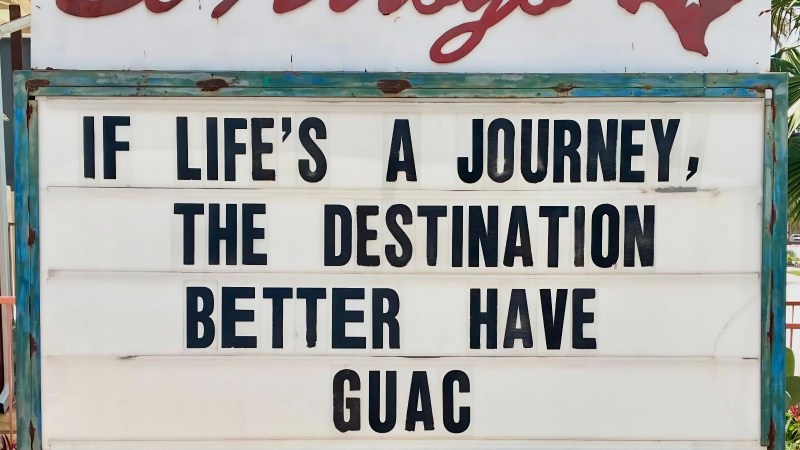 IF LIFE'S A JOURNEY,
THE DESTINATION
BETTER HAVE
GUAC